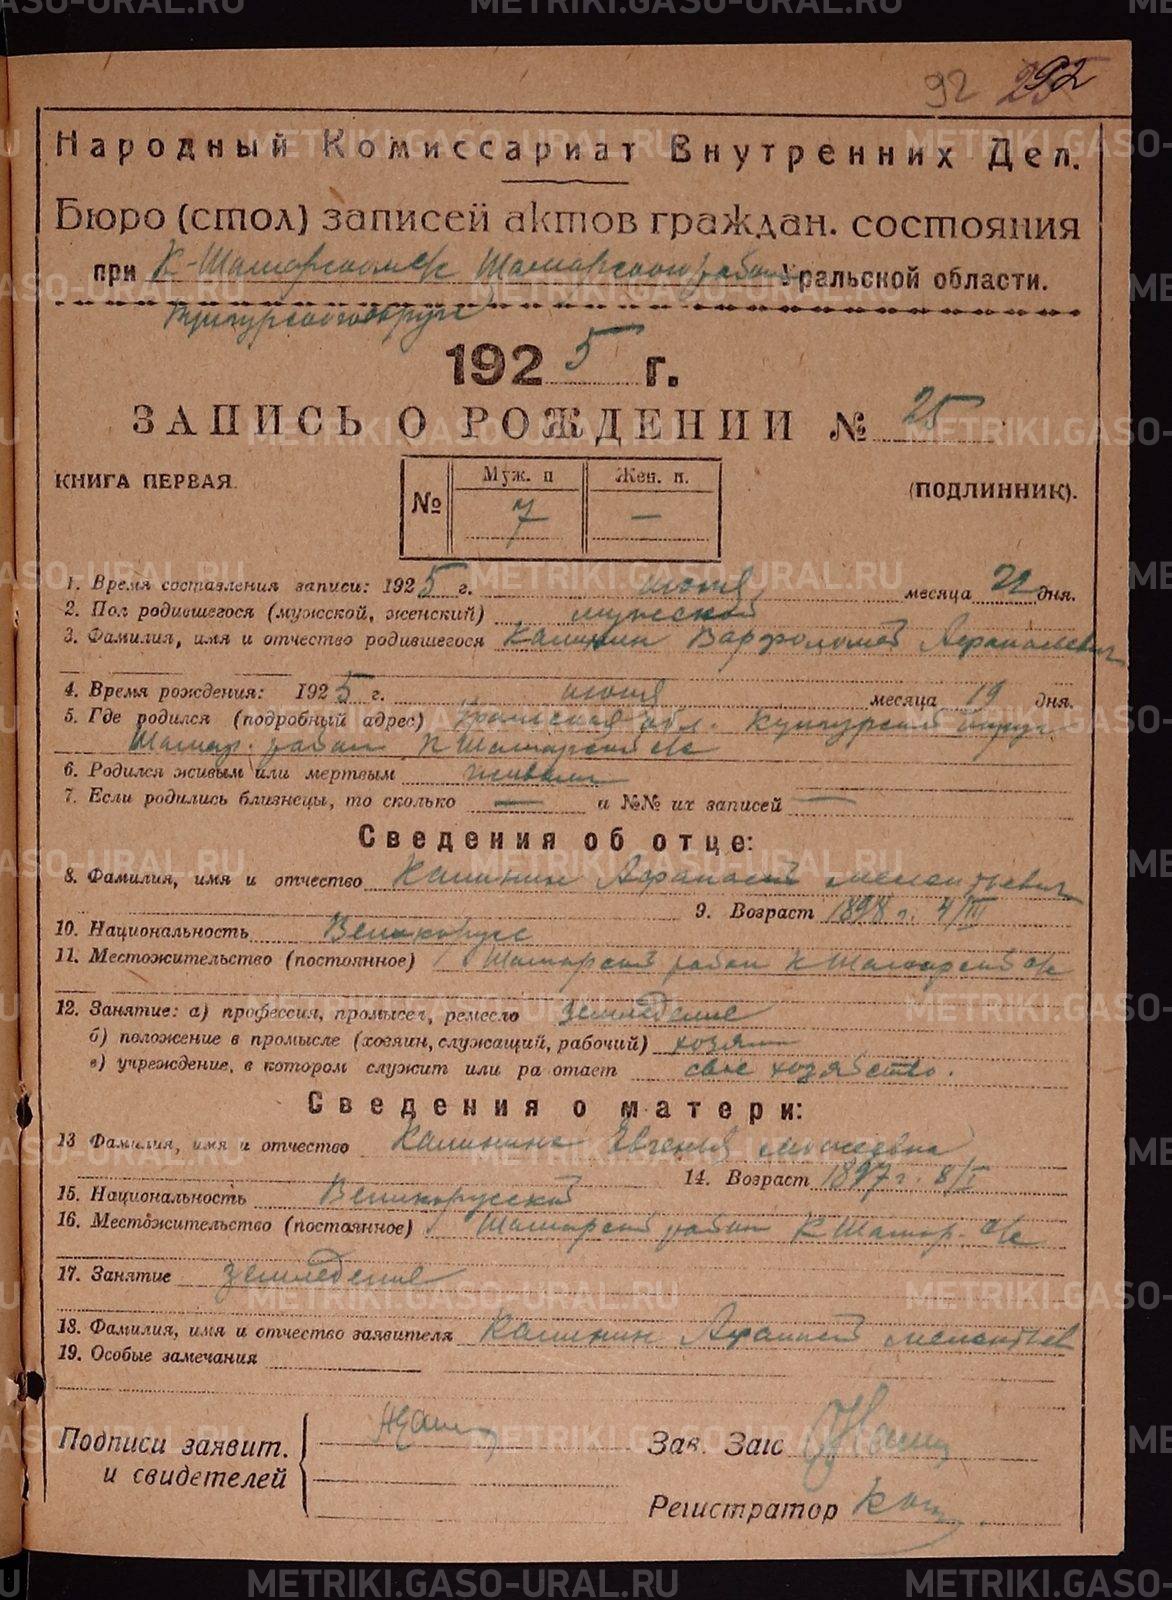 92 292
Народный Комиссариат Внутренних Дел.
Бюро (стол) записей актов граждан. состояния
при К-Шамарском с/с Шамарского района Уральской области.
Кунгурского округа
1925 г.
ЗАПИСЬ О РОЖДЕНИИ № 25
КНИГА ПЕРВАЯ. (ПОДЛИННИК).
№ Муж. п Жен. п.
7 —
1. Время составления записи: 1925 г. месяца 22 дня.
2. Пол родившегося (мужской, женский) мужской
3. Фамилия, имя и отчество родившегося Калинин Варфоломей Афанасьевич
4. Время рождения: 1925 г. месяца 19 дня.
5. Где родился (подробный адрес) Уральская обл. Кунгурский округ
Шамар. район К Шамарский с/с
6. Родился живым или мертвым живым
7. Если родились близнецы, то сколько — и №№ их записей —
Сведения об отце:
8. Фамилия, имя и отчество Калинин Афанасий Мелентьевич
9. Возраст 1898 г. 4/III
10. Национальность Великорусс
11. Местожительство (постоянное) Шамарский район К Шамарский с/с
12. Занятие: а) профессия, промысел, ремесло земледелие
б) положение в промысле (хозяин, служащий, рабочий) хозяин
в) учреждение, в котором служит или ра отает свое хозяйство.
Сведения о матери:
13 Фамилия, имя и отчество Калинина Евгения Моисеевна
14. Возраст 1897 г. 8/I
15. Национальность Великорусской
16. Местожительство (постоянное) Шамарский район К Шамар. с/с
17. Занятие земледелие
18. Фамилия, имя и отчество заявителя Калинин Афанасий Мелентьев
19. Особые замечания
Подписи заявит. и свидетелей
Зав. Загс
Регистратор
METRIKI.GASO-URAL.RU